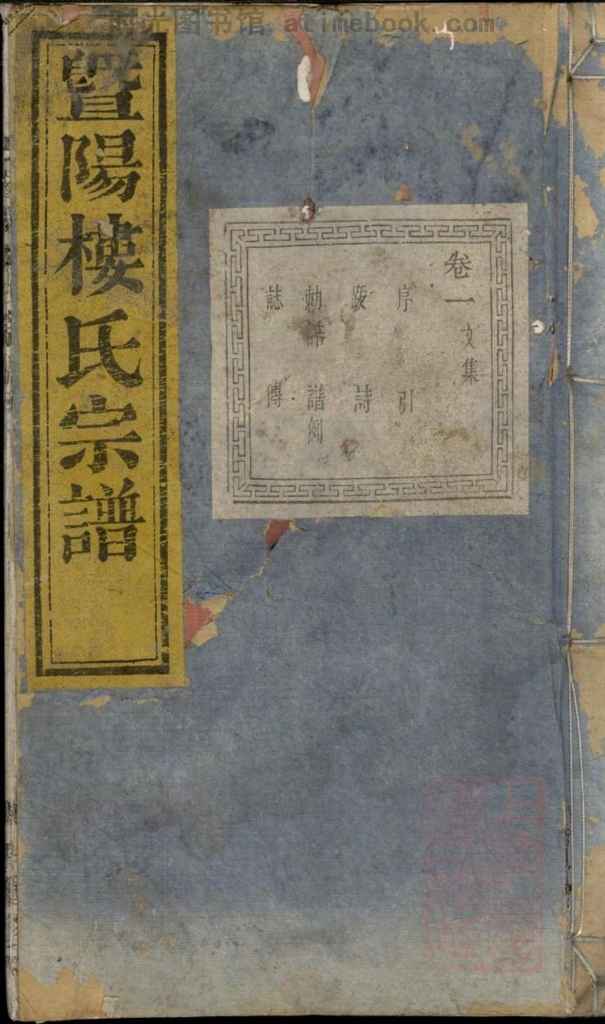 时光图书馆 atimebook.com
暨陽樓氏宗譜
卷一 文集
序 引
跋 詩
勅誥 譜例
誌 傳